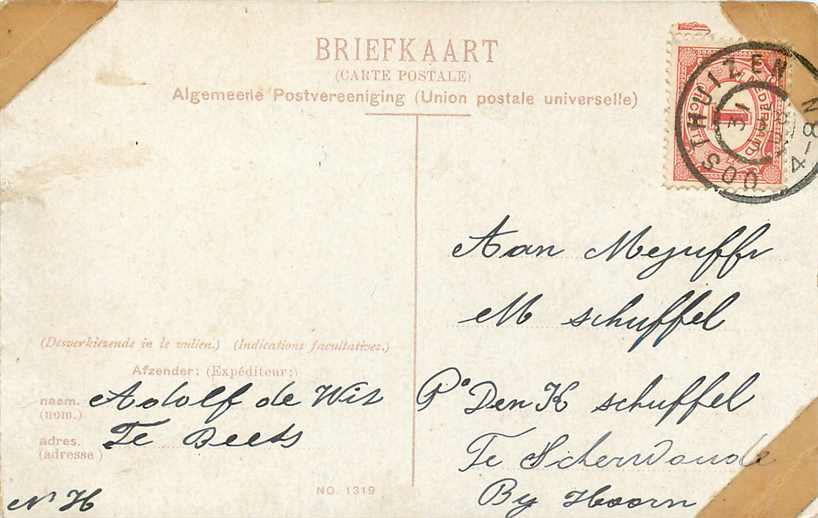 BRIEFKAART
(CARTE POSTALE)
Algemeene Postvereeniging (Union postale universelle)
OOSTHUIZEN
NEDERLAND
1
4-8 N
Aan Mejuffr
M schuffel
P° Den K schuffel
Te Scherwoude
By Hoorn
(Desverkiezende in te vullen.) (Indications facultatives.)
Afzender: (Expéditeur:)
naam. Adolf de Wit
(nom.)
adres. Te Beets
(adresse)
N H
NO. 1319